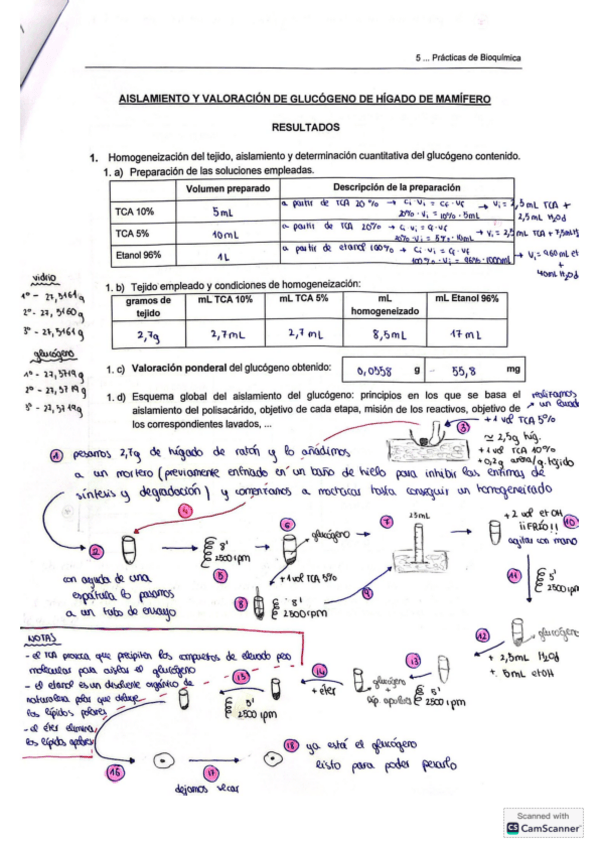 5 ... Prácticas de Bioquímica
AISLAMIENTO Y VALORACIÓN DE GLUCÓGENO DE HÍGADO DE MAMÍFERO
RESULTADOS
1. Homogeneización del tejido, aislamiento y determinación cuantitativa del glucógeno contenido.
1. a) Preparación de las soluciones empleadas.
Volumen preparado Descripción de la preparación
TCA 10% 5mL a partir de TCA 20% → Ci Vi = Cf · Vf → Vi = 2,5 mL TCA +
20% · Vi = 10% · 5mL 2,5 mL H2Od
TCA 5% 10mL a partir de TCA 20% → Ci Vi = Cf · Vf → Vi = 2,5 mL TCA + 7,5mL H
20% · Vi = 5% · 10mL
Etanol 96% 1L a partir de etanol 100% → Ci Vi = Cf · Vf → Vi = 960 mL et
100% · Vi = 96% · 1000mL +
40mL H2Od
vidrio
1º - 27,5161g
2º - 27,5160g
3º - 27,5161g
1. b) Tejido empleado y condiciones de homogeneización:
gramos de tejido mL TCA 10% mL TCA 5% mL homogeneizado mL Etanol 96%
2,7g 2,7mL 2,7 mL 8,5mL 17 mL
glucógeno
1º - 27,5719g
2º - 27,5719g
3º - 27,5719g
1. c) Valoración ponderal del glucógeno obtenido: 0,0558 g 55,8 mg
1. d) Esquema global del aislamiento del glucógeno: principios en los que se basa el
aislamiento del polisacárido, objetivo de cada etapa, misión de los reactivos, objetivo de
los correspondientes lavados, ...
realizamos
un lavado
+ 1 vol TCA 5%
3
≃ 2,5g híg.
+ 1 vol TCA 10%
+ 0,2g arena/g.tejido
1 pesamos 2,7g de hígado de ratón y lo añadimos
a un mortero (previamente enfriado en un baño de hielo para inhibir las enzimas de
síntesis y degradación) y comenzamos a machacar hasta conseguir un homogeneizado
4
2
con ayuda de una
espátula lo pasamos
a un tubo de ensayo
8'
2500 rpm
5
6
glucógeno
+ 1 vol TCA 5%
8
8'
2500 rpm
7
25mL
9
+ 2 vol etOH
¡¡FRÍO!! 10
agitar con mano
11
5'
2500rpm
12
glucógeno
+ 2,5mL H2Od
+ 5mL etOH
13
5'
2500 rpm
glucógeno
+
líp. apolares
14
+ éter
15
5'
2500 rpm
NOTAS
- el TCA provoca que precipiten los compuestos de elevado peso
molecular para aislar el glucógeno
- el etanol es un disolvente orgánico de
naturaleza polar que disuelve
los lípidos polares
- el éter elimina
los lípidos apolares
16
17
dejamos secar
18 ya está el glucógeno
listo para poder pesarlo
Scanned with
CS CamScanner